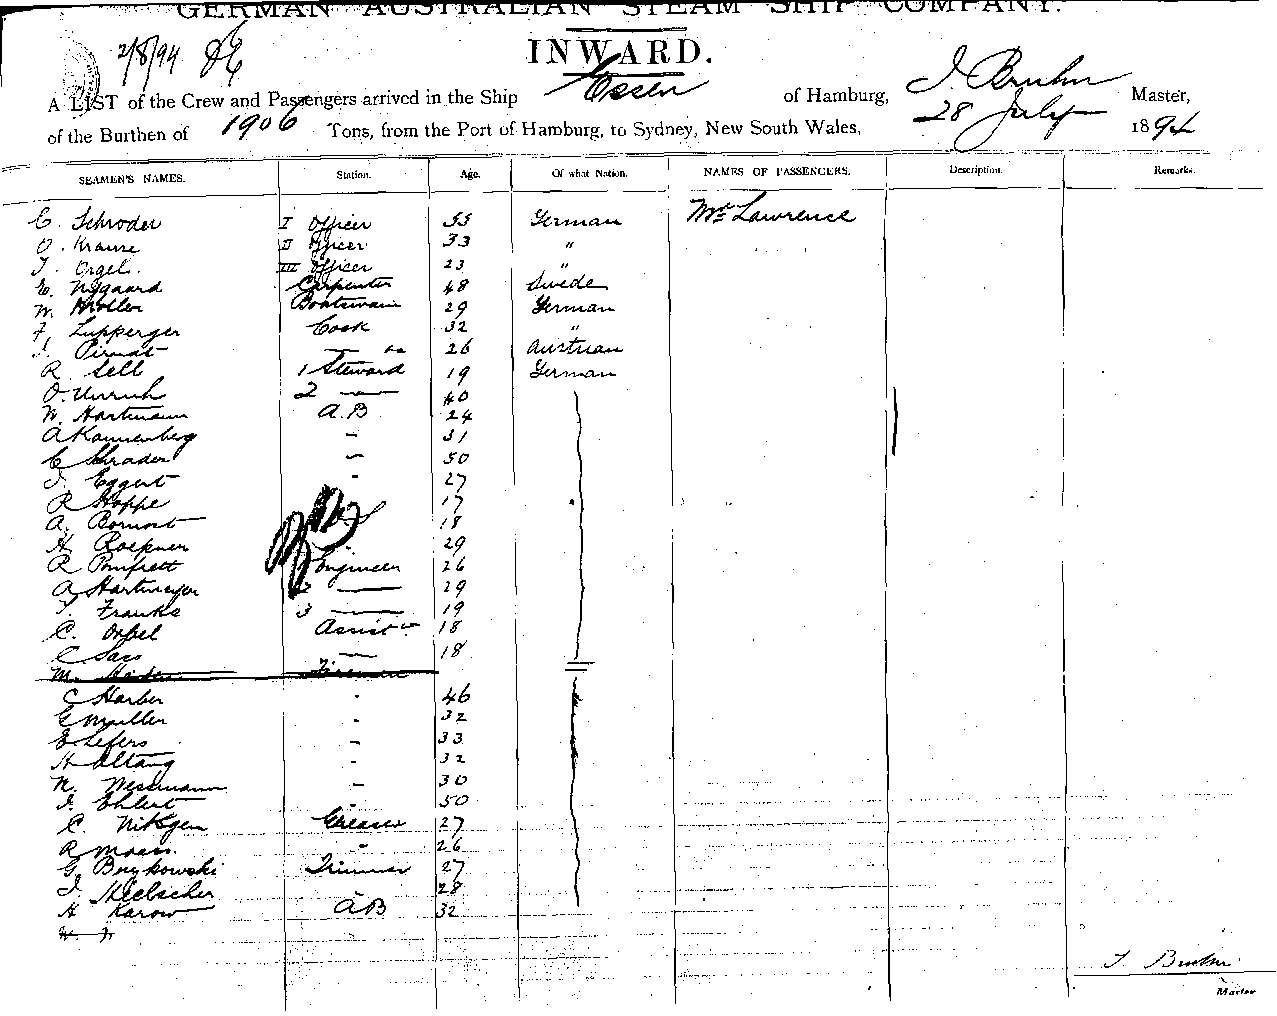 GERMAN AUSTRALIAN STEAM SHIP COMPANY.
2/8/94
INWARD.
A LIST of the Crew and Passengers arrived in the Ship Essen of Hamburg, J. Bruhn Master,
of the Burthen of 1906 Tons, from the Port of Hamburg, to Sydney, New South Wales, 28 July 1894
SEAMEN'S NAMES. Station. Age. Of what Nation. NAMES OF PASSENGERS. Description. Remarks.
C. Schroder I Officer 55 German Mr Lawrence
O. Krause II Officer 33 "
T. Orgel. III Officer 23 "
E. Nygaard Carpenter 48 Swede
W. Moller Boatswain 29 German
F. Lupperger Cook 32 "
J. 26 Austrian
R Sell 1 Steward 19 German
O. Unruh 2 — 40
W. Hartmann A.B 24
A Kannenberg - 31
C Schrader - 50
J. Eggert - 27
R Hoppe 17
A. 18
H 29
R Engineer 26
A Hartmeyer 2 — 29
T. Franke 3 — 19
C. Orpel Assist 18
C Sass — 18
M. Firemen
C Harber - 46
G Muller - 32
E Lefers - 33
H Altang - 32
N. Wessmann - 30
J. Ehlert - 50
C. Nitkgen Greaser 27
R Moass. - 26
G. Boykowski Trimmer 27
J Hielscher 28
H Karow A B 32
J. Bruhn
Master